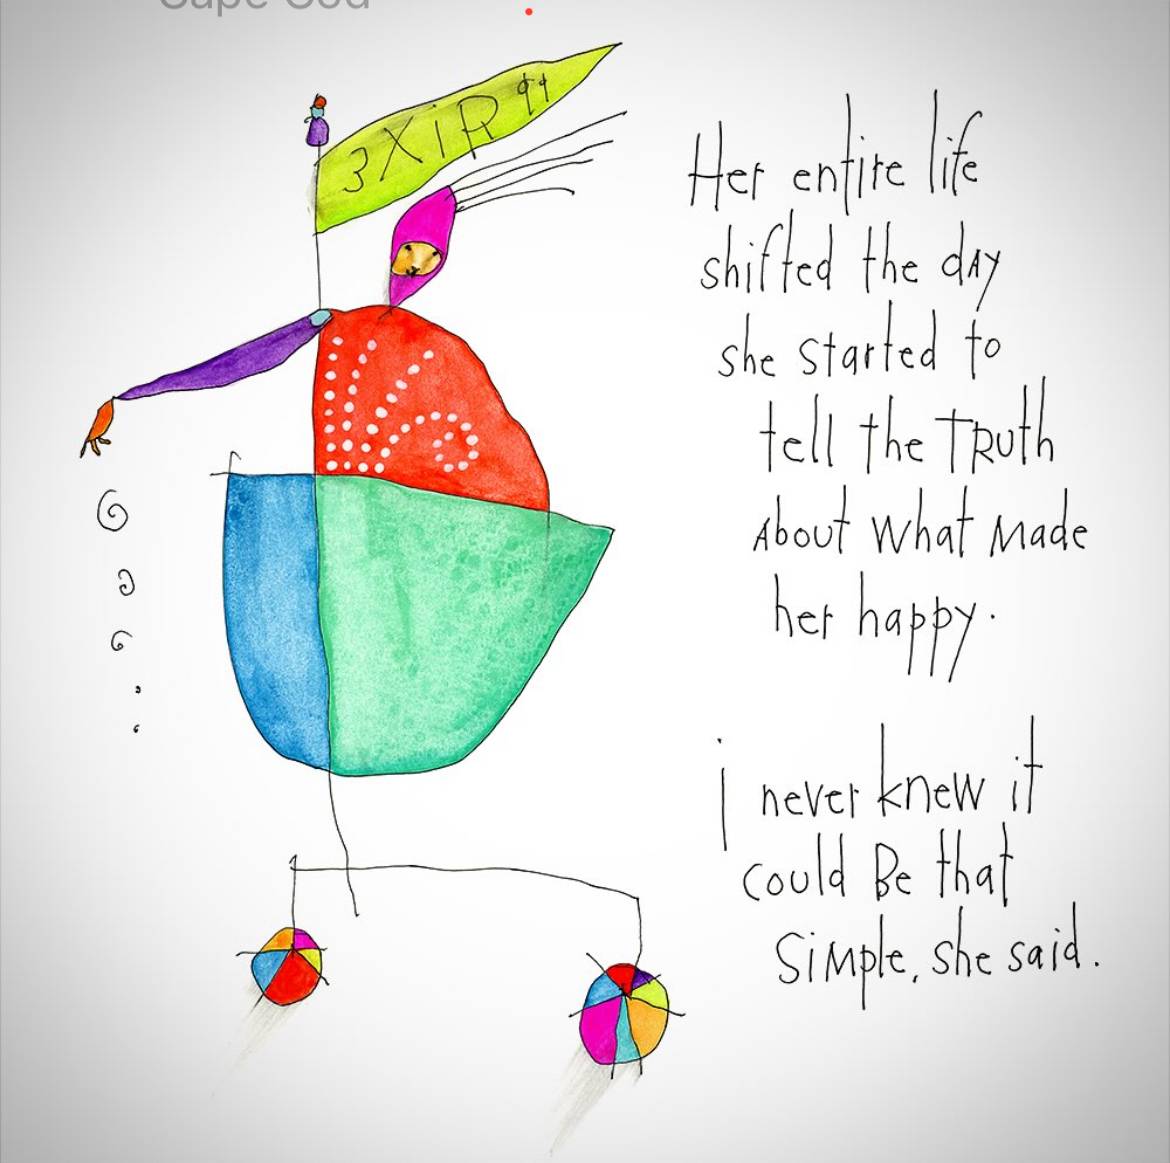 Cape Cod
3XiR99
Her entire life
shifted the dAy
she started to
tell the TRuth
About what Made
her happy.
i never knew it
could Be that
Simple, she said.